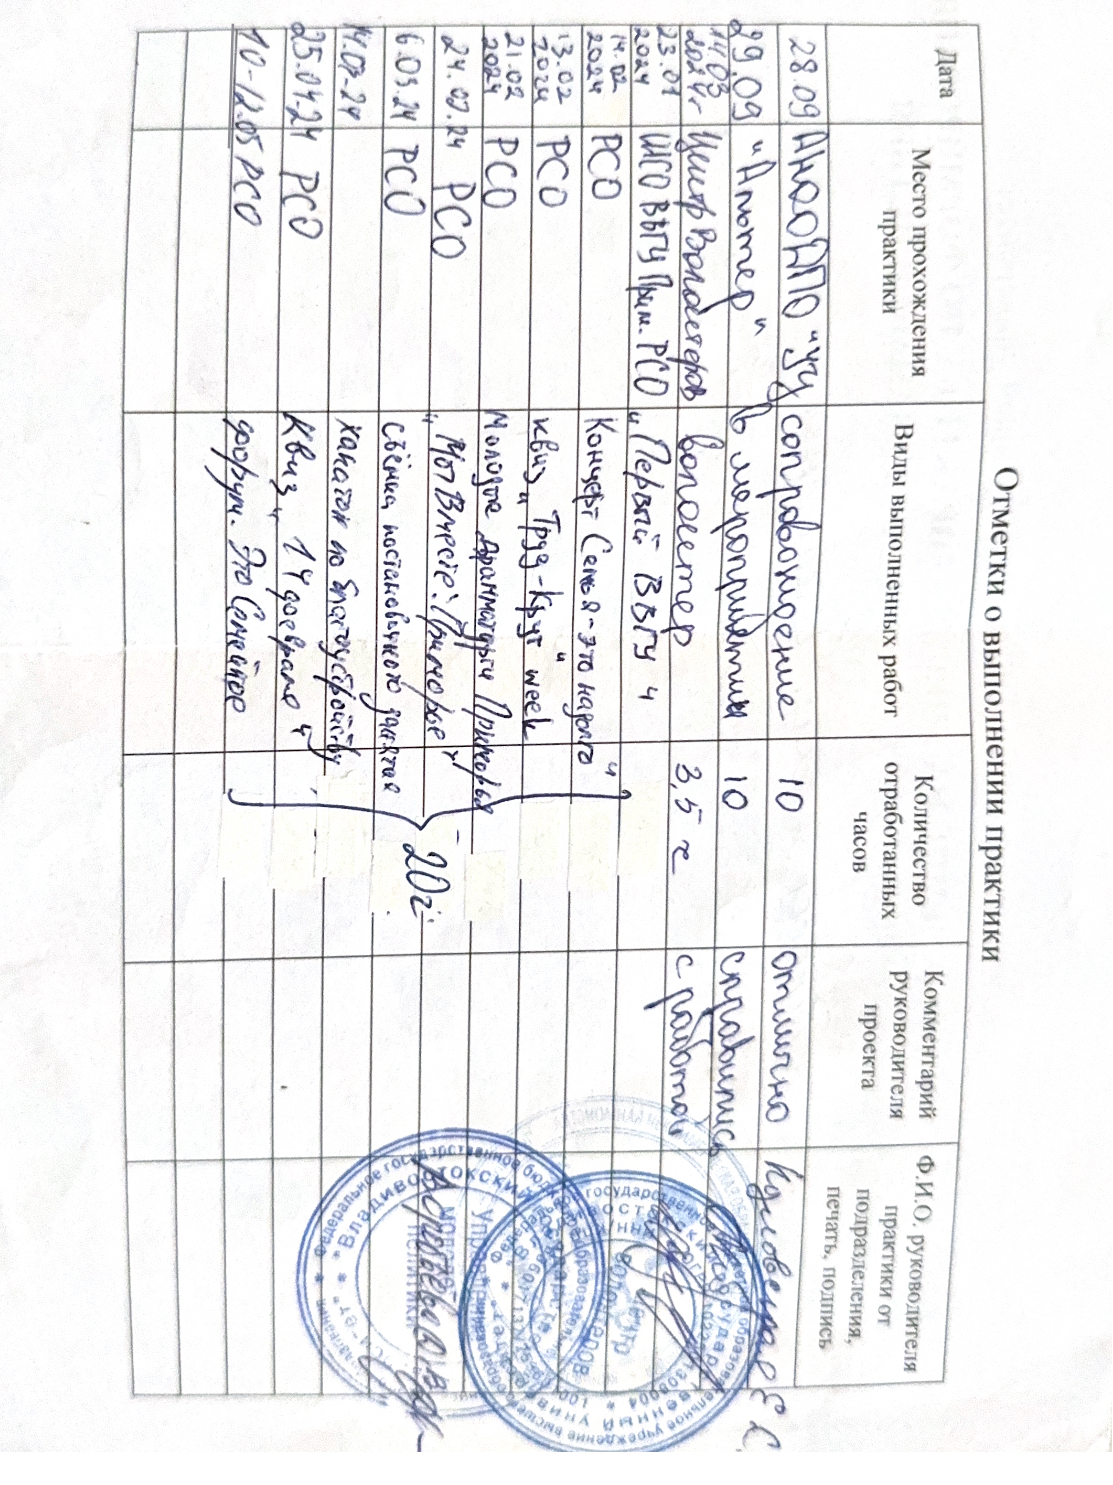 Отметки о выполнении практики
Дата
Место прохождения
практики
Виды выполненных работ
Количество
отработанных
часов
Комментарий
руководителя
проекта
Ф.И.О. руководителя
практики от
подразделения,
печать, подпись
28.09 АНООДПО "УЦ сопровождение 10 отлично
29.09 "Альтер" в мероприятии 10 справились
14.03
2024г Центр Волонтеров волонтер 3,5 ч с работой
23.01
2024 ШСО ВВГУ Прим. РСО "Первый ВВГУ"
14.02
2024 РСО Концерт Семья-это надолго"
13.02
2024 РСО квиз "Труд-Крут" week
21.02
2024 РСО Молодые драмматурги Приморья
24.02.24 РСО "МотВместе: Приморье"
6.03.24 РСО съёмка постановочного занятия
14.03-24 хакатон по благоустройству
25.04.24 РСО Квиз "14 февраля"
10-12.05 РСО форум. Это Семейное
20ч